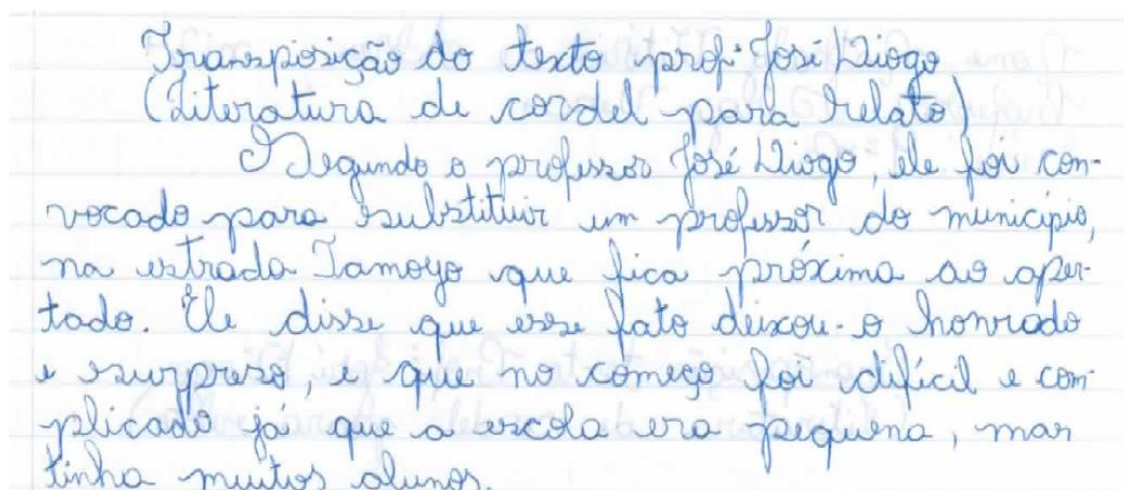 Transposição do texto prof: José Diogo
(Literatura de cordel para relato)
Segundo o professor José Diogo, ele foi con-
vocado para substituir um professor do município,
na estrada Tamoyo que fica próxima ao aper-
tado. Ele disse que esse fato deixou-o honrado
e surpreso, e que no começo foi difícil e com-
plicado já que a escola era pequena, mas
tinha muitos alunos.